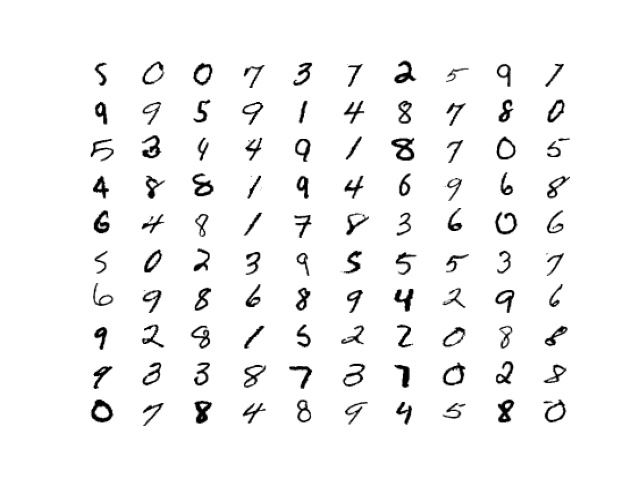 5 0 0 7 3 7 2 5 9 7
9 9 5 9 1 4 8 7 8 0
5 3 4 4 9 1 8 7 0 5
4 8 8 1 9 4 6 9 6 8
6 4 8 1 7 8 3 6 0 6
5 0 2 3 9 5 5 5 3 7
6 9 8 6 8 9 4 2 9 6
9 2 8 1 5 2 2 0 8 8
9 3 3 8 7 3 7 0 2 8
0 7 8 4 8 9 4 5 8 0